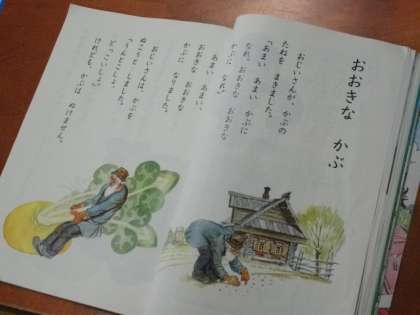 おおきな かぶ
おじいさんが、かぶの
たねを まきました。
「あまい あまい かぶに
なれ。おおきな おおきな
かぶに なれ。」
あまい あまい、
おおきな おおきな
かぶに なりました。
おじいさんは、かぶを
ぬこうと しました。
「うんとこしょ、
どっこいしょ。」
けれども、かぶは ぬけません。